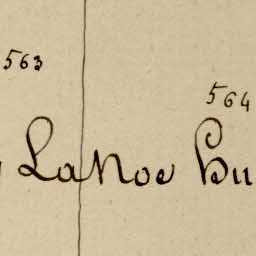 563
564
LaNoe Hu